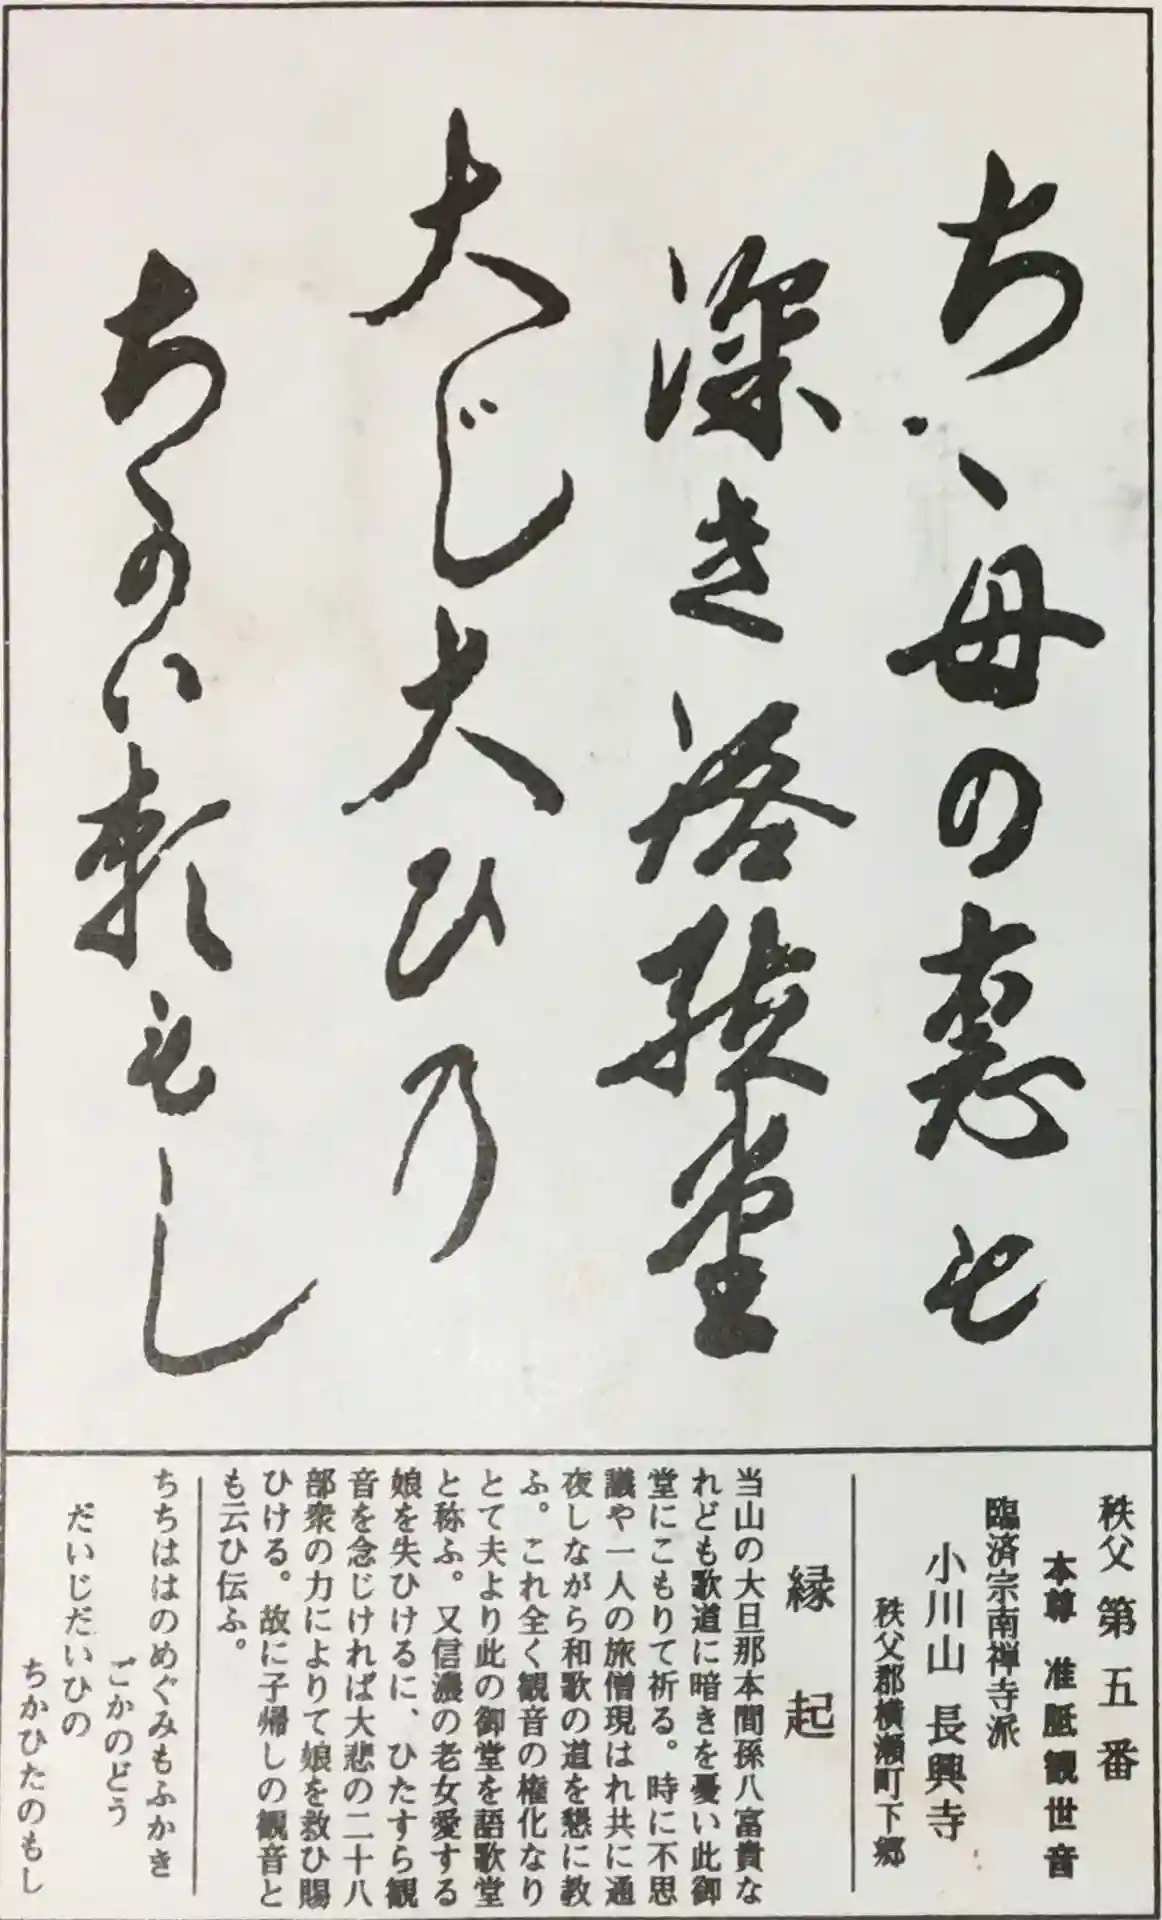 ちゝ母の恵も
深き語歌堂
大じ大ひ乃
ちかひ頼もし
秩父 第五番
本尊 准胝観世音
臨済宗南禅寺派
小川山 長興寺
秩父郡横瀬町下郷
縁起
当山の大旦那本間孫八富貴な
れども歌道に暗きを憂い此御
堂にこもりて祈る。時に不思
議や一人の旅僧現はれ共に通
夜しながら和歌の道を懇に教
ふ。これ全く観音の権化なり
とて夫より此の御堂を語歌堂
と称ふ。又信濃の老女愛する
娘を失ひけるに、ひたすら観
音を念じければ大悲の二十八
部衆の力によりて娘を救ひ賜
ひける。故に子帰しの観音と
も云ひ伝ふ。
ちちははのめぐみもふかき
ごかのどう
だいじだいひの
ちかひたのもし